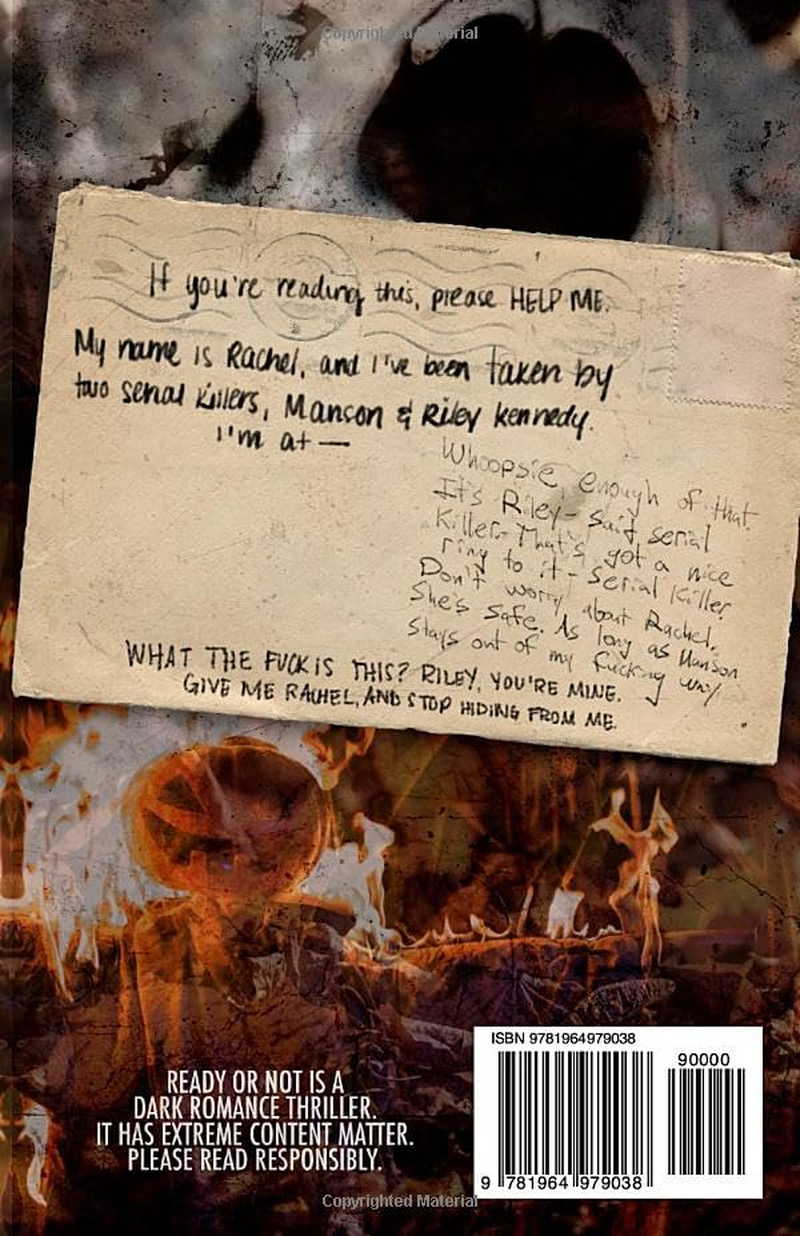 Copyrighted Material
If you're reading this, please HELP ME.
My name is Rachel, and I've been taken by
two serial killers, Manson & Riley Kennedy.
I'm at —
Whoopsie, enough of that.
It's Riley - Said serial
Killer. That's got a nice
ring to it - Serial Killer.
Don't worry about Rachel,
She's safe. As long as Manson
stays out of my fucking way
WHAT THE FUCK IS THIS? RILEY, YOU'RE MINE.
GIVE ME RACHEL, AND STOP HIDING FROM ME.
READY OR NOT IS A
DARK ROMANCE THRILLER.
IT HAS EXTREME CONTENT MATTER.
PLEASE READ RESPONSIBLY.
ISBN 9781964979038
90000
9 781964 979038
Copyrighted Material